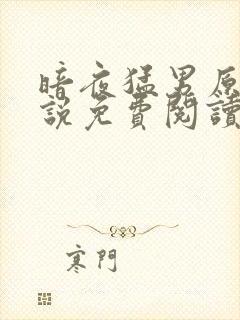 暗夜猛男原
說免費閱讀
寒門